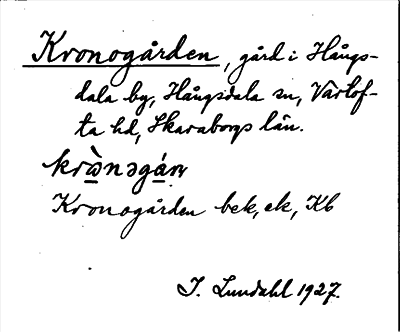 Kronogården, gård i Hångs-
dala by, Hångsdala sn, Vartof-
ta hd, Skaraborgs län.
krὼnəgán
Kronogården bek, ek, Kb
I. Lundahl 1927.